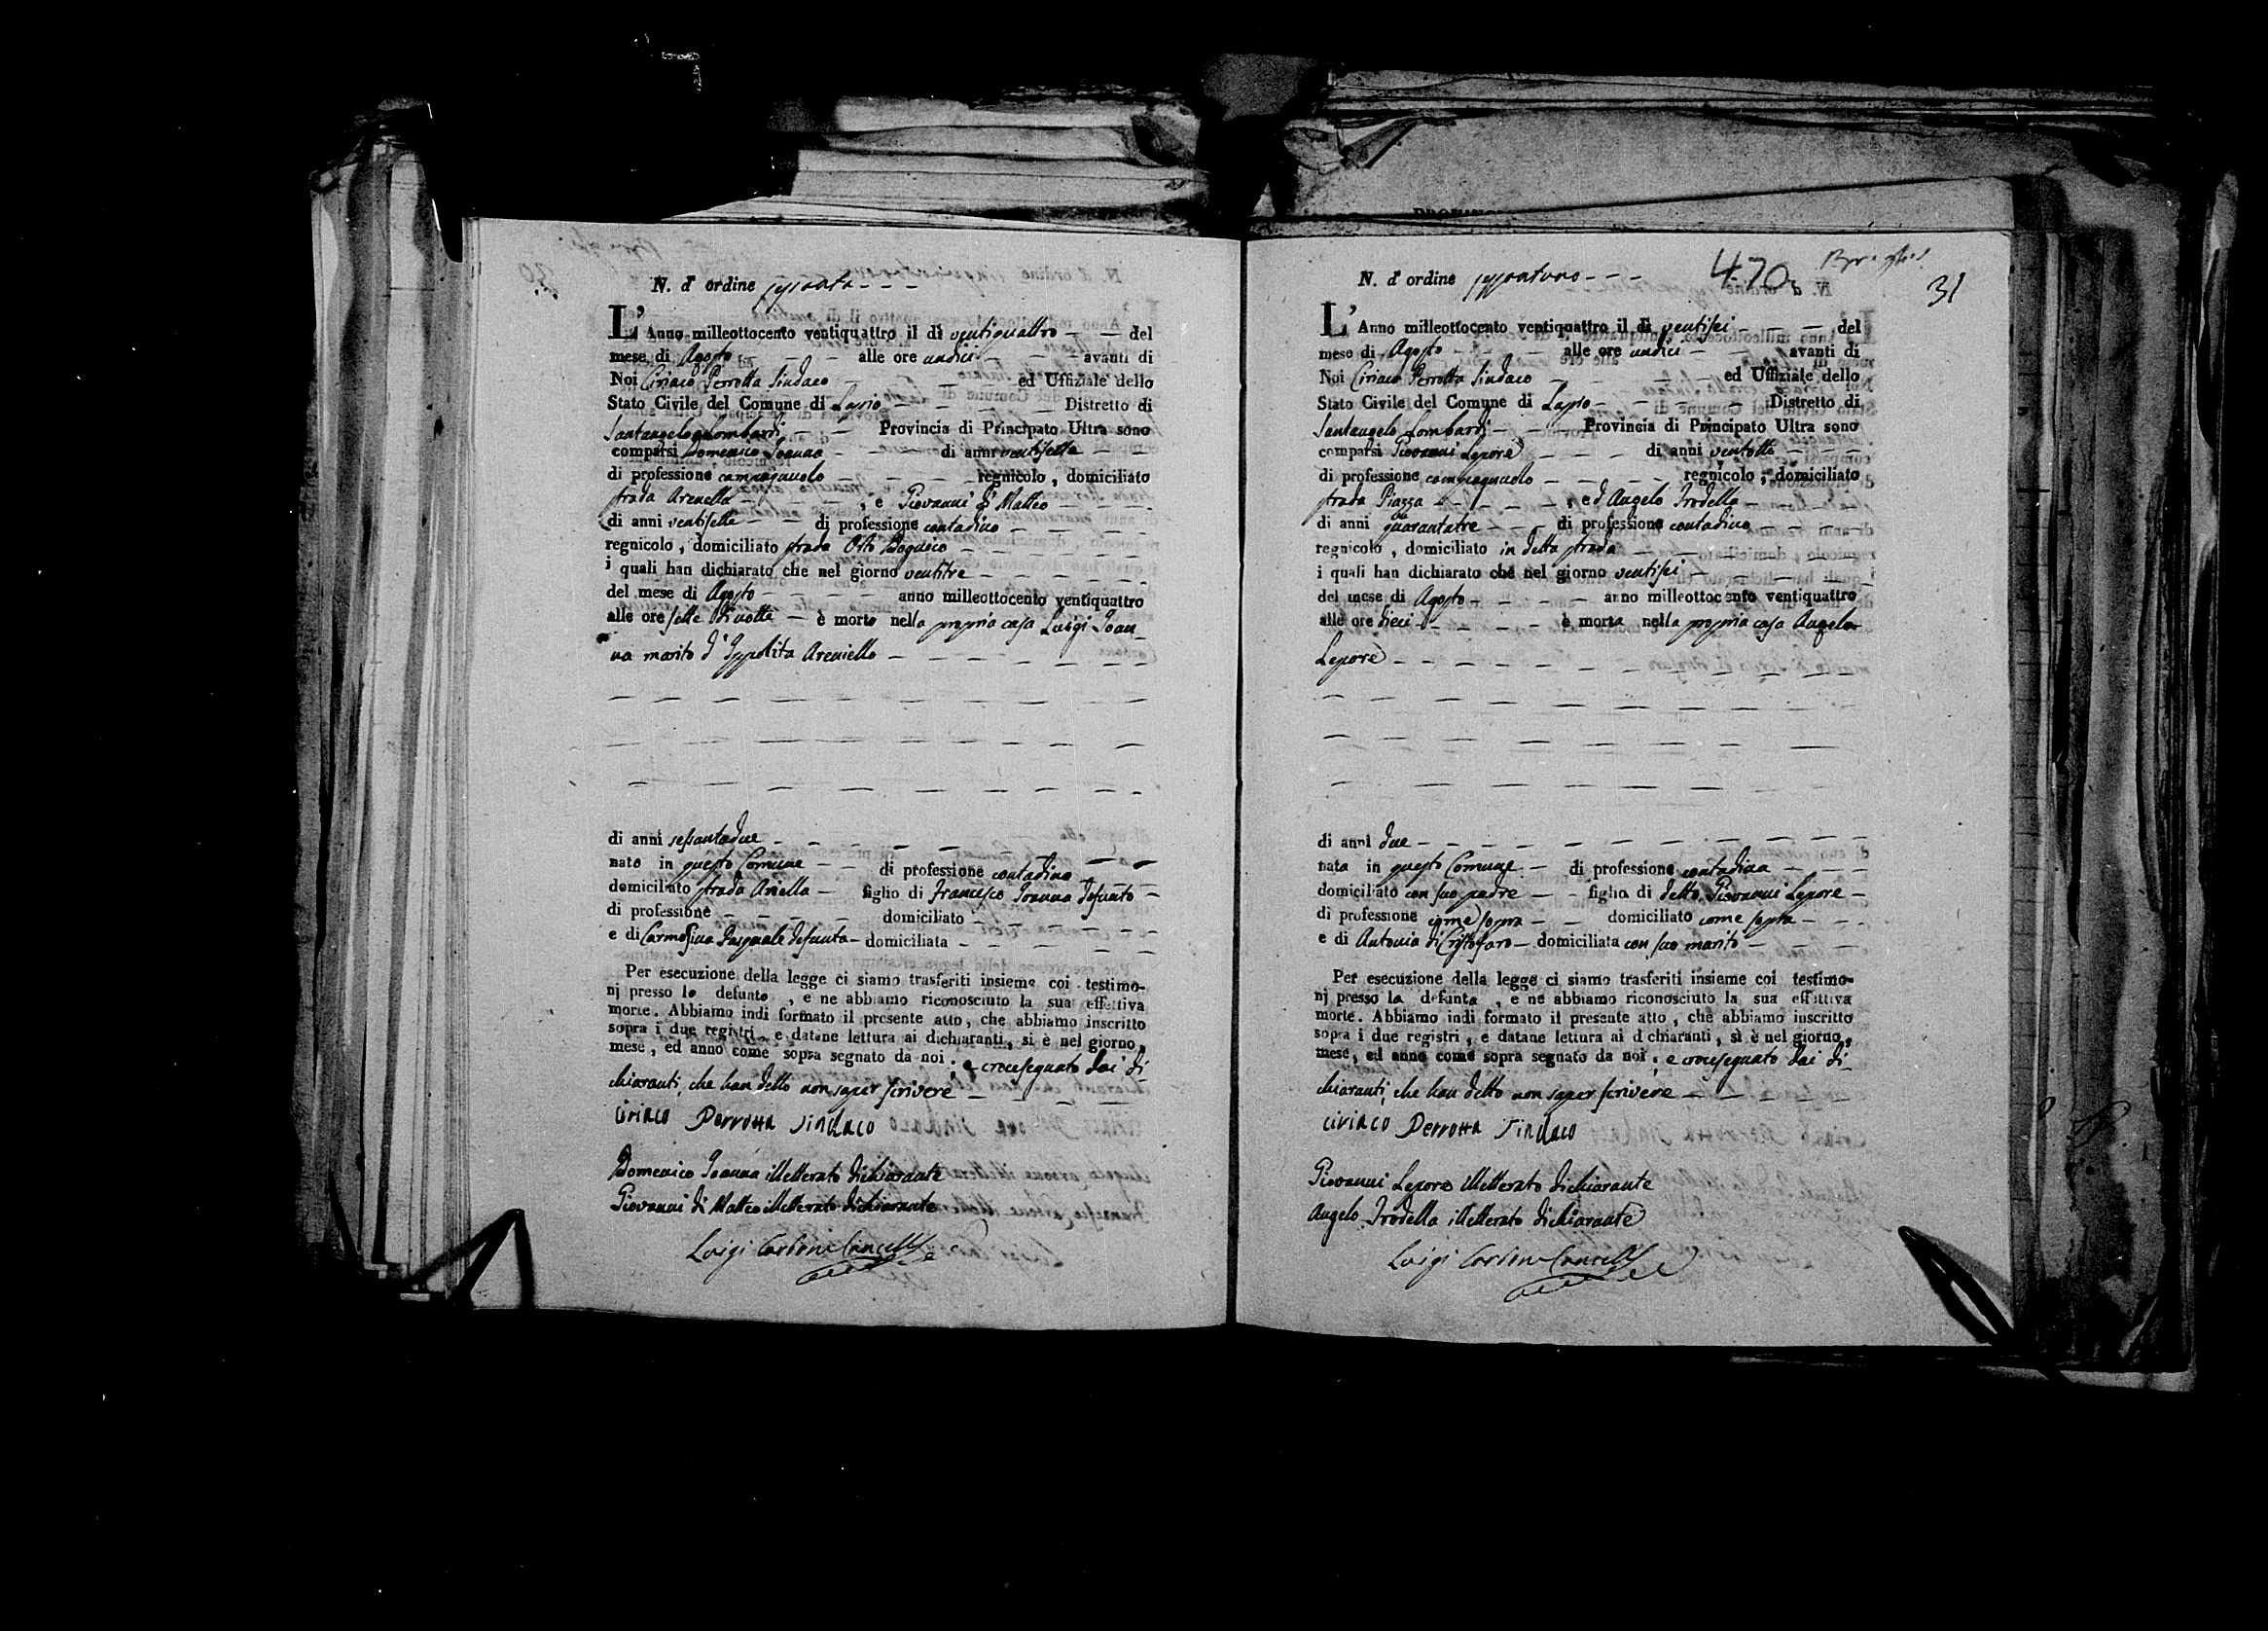 N. d' ordine sessanta
L' Anno milleottocento ventiquattro il dì ventiquattro del
mese di Agosto alle ore undici avanti di
Noi Ciriaco Perrotta Sindaco ed Uffiziale dello
Stato Civile del Comune di Lapio Distretto di
Santangelo Lombardi Provincia di Principato Ultra sono
comparsi Domenico Joanna di anni ventisette
di professione campagnuolo regnicolo, domiciliato
strada Arenella, e Giovanni di Matteo
di anni ventisette di professione contadino
regnicolo, domiciliato strada Orto
i quali han dichiarato che nel giorno ventitre
del mese di Agosto anno milleottocento ventiquattro
alle ore sette di notte è morto nella propria casa Luigi Joan-
na marito d' Ippolita Areniello
di anni sessantadue
nato in questo Comune di professione contadino
domiciliato strada Ariella figlio di Francesco Joanna defunto
di professione domiciliato
e di Carmosina Pasquale defunta domiciliata
Per esecuzione della legge ci siamo trasferiti insieme coi testimo-
nj presso lo defunto, e ne abbiamo riconosciuto la sua effettiva
morte. Abbiamo indi formato il presente atto, che abbiamo inscritto
sopra i due registri, e datane lettura ai dichiaranti, si è nel giorno,
mese, ed anno come sopra segnato da noi; e crocesegnato dai di-
chiaranti, che han detto non saper scrivere
Ciriaco Perrotta Sindaco
Domenico Joanna illetterato dichiarante
Giovanni di Matteo illetterato dichiarante
Luigi Carbone Cancell
470
31
N. d' ordine sessantuno
L' Anno milleottocento ventiquattro il dì ventisei del
mese di Agosto alle ore undici avanti di
Noi Ciriaco Perrotta Sindaco ed Uffiziale dello
Stato Civile del Comune di Lapio Distretto di
Santangelo Lombardi Provincia di Principato Ultra sono
comparsi Giovanni Lepore di anni ventotto
di professione campagnuolo regnicolo, domiciliato
strada Piazza, ed Angelo Trodella
di anni quarantatre di professione contadino
regnicolo, domiciliato in detta strada
i quali han dichiarato che nel giorno ventisei
del mese di Agosto anno milleottocento ventiquattro
alle ore dieci è morta nella propria casa Angela
Lepore
di anni due
nata in questo Comune di professione contadina
domiciliato con suo padre figlia di detto Giovanni Lepore
di professione come sopra domiciliato come sopra
e di Antonia di Cristofaro domiciliata con suo marito
Per esecuzione della legge ci siamo trasferiti insieme coi testimo-
nj presso la defunta, e ne abbiamo riconosciuto la sua effettiva
morte. Abbiamo indi formato il presente atto, che abbiamo inscritto
sopra i due registri, e datane lettura ai d chiaranti, si è nel giorno,
mese, ed anno come sopra segnato da noi; e crocesegnato dai di-
chiaranti, che han detto non saper scrivere
Ciriaco Perrotta Sindaco
Giovanni Lepore illetterato dichiarante
Angelo Trodella illetterato dichiarante
Luigi Carbone Cancell